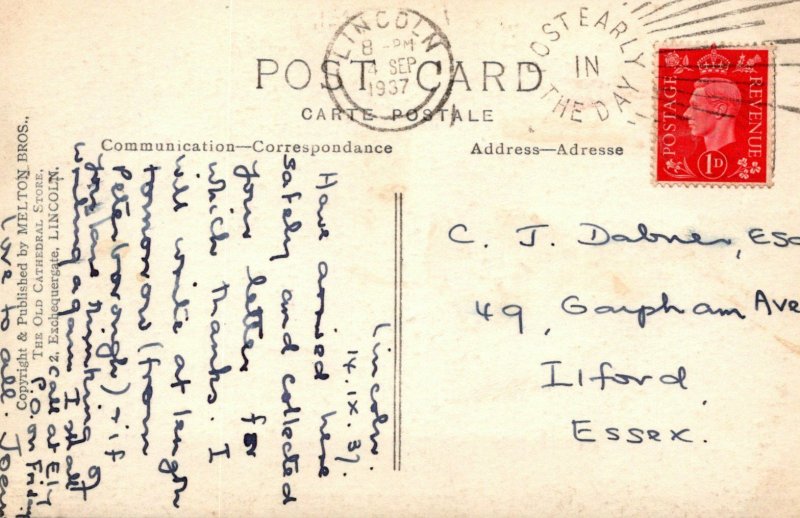 LINCOLN
8 - PM
4 SEP
1937
POST EARLY
IN
THE DAY
POSTAGE
REVENUE
1D
POST CARD
CARTE POSTALE
Communication—Correspondance
Address—Adresse
Copyright & Published by MELTON BROS.,
THE OLD CATHEDRAL STORE,
2, Exchequergate, LINCOLN.
Lincoln.
14.IX.37.
Have arrived here
safely and collected
your letter for
which thanks. I
will write at length
tomorrow (from
Peterborough) & if
you are thinking of
writing again I shall
call at Ely
P.O. on Friday
Love to all.
C. J. Dabner, Esq
49, Garpham Ave
Ilford
ESSEX.